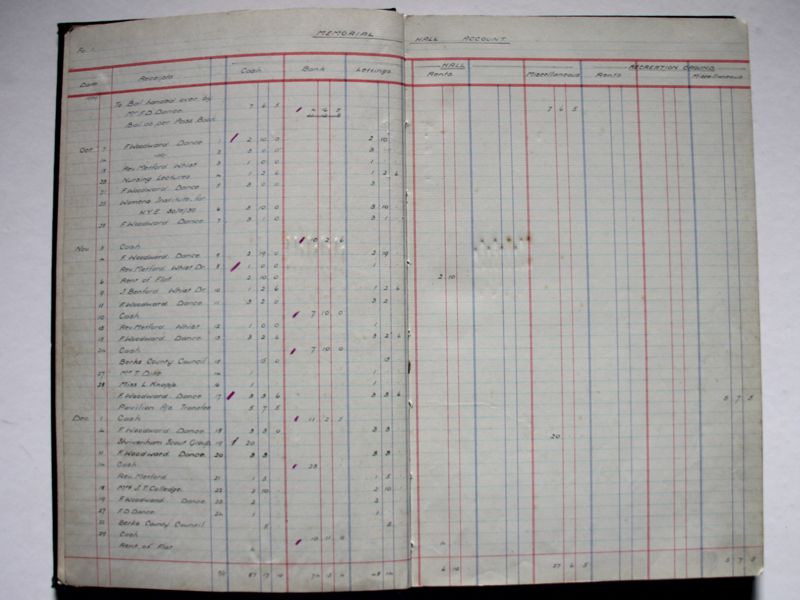 MEMORIAL HALL ACCOUNT
Fo. 1.
HALL RECREATION GROUND
Date Receipts Cash Bank Lettings Rents Miscellaneous Rents Miscellaneous
To Bal handed over by 7 6 5 7 6 5
Mr F.D. Dance.
Bal as per Pass Book
Oct 7 F. Woodward Dance 2 10 0 2 10
14 3 0 0 3
Rev. Metford Whist 3 1 0 0 1
20 Nursing Lectures 4 1 2 6 1 2 6
21 F. Woodward Dance 5 3 0 0 3
Womens Institute for
N.Y.E. 6 3 10 0 3 10
28 F. Woodward Dance 7 3 1 0 3 1
Nov 3 Cash 10 2 6
4 F. Woodward Dance 8 2 19 0 2 19
Rev. Metford Whist Dr. 9 1 0 0 1
6 Rent of Flat 2 10 0 2 10
9 J. Benford Whist Dr. 10 1 2 6 1 2 6
11 F. Woodward Dance 11 3 2 0 3 2
Cash 7 10 0
Rev. Metford Whist 12 1 0 0 1
F. Woodward Dance 13 3 2 6 3 2 6
24 Cash 7 10 0
Berks County Council 15 0 15
27 Mr T. 14 1 1
28 Miss L. Knapp 16 1 1
F. Woodward Dance 17 3 3 6 3 3 6
Pavilion A/c Transfer 5 7 5 5 7 5
Dec 1 Cash 11 2
F. Woodward Dance 18 3 3 0 3 3
Shrivenham Scout Group 19 20 20
11 F. Woodward Dance 20 3 3 3 3
14 Cash 23
Rev. Metford 21 1 5 1 5
18 Mrs J.T. Colledge 22 2 10 2 10
19 F. Woodward Dance 23 2 2
27 F.D. Dance 24 1 1
Berks County Council 5 5
29 Cash
Rent of Flat 4 4
6 10 27 6 5 5 7 5